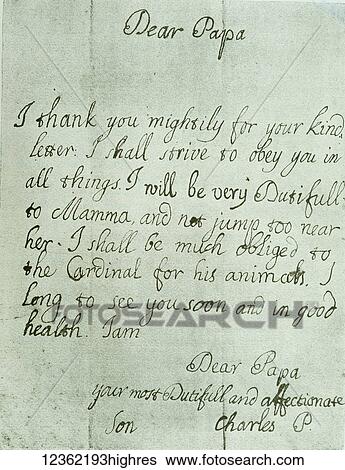 Dear Papa
I thank you mightily for your kind
letter. I shall strive to obey you in
all things. I will be very Dutifull
to Mamma, and not jump too near
her. I shall be much obliged to
the Cardinal for his animals. I
long to see you soon and in good
health. I am
Dear Papa
your most Dutifull and affectionate
Son Charles P.
fotosearch
12362193highres www.fotosearch.com